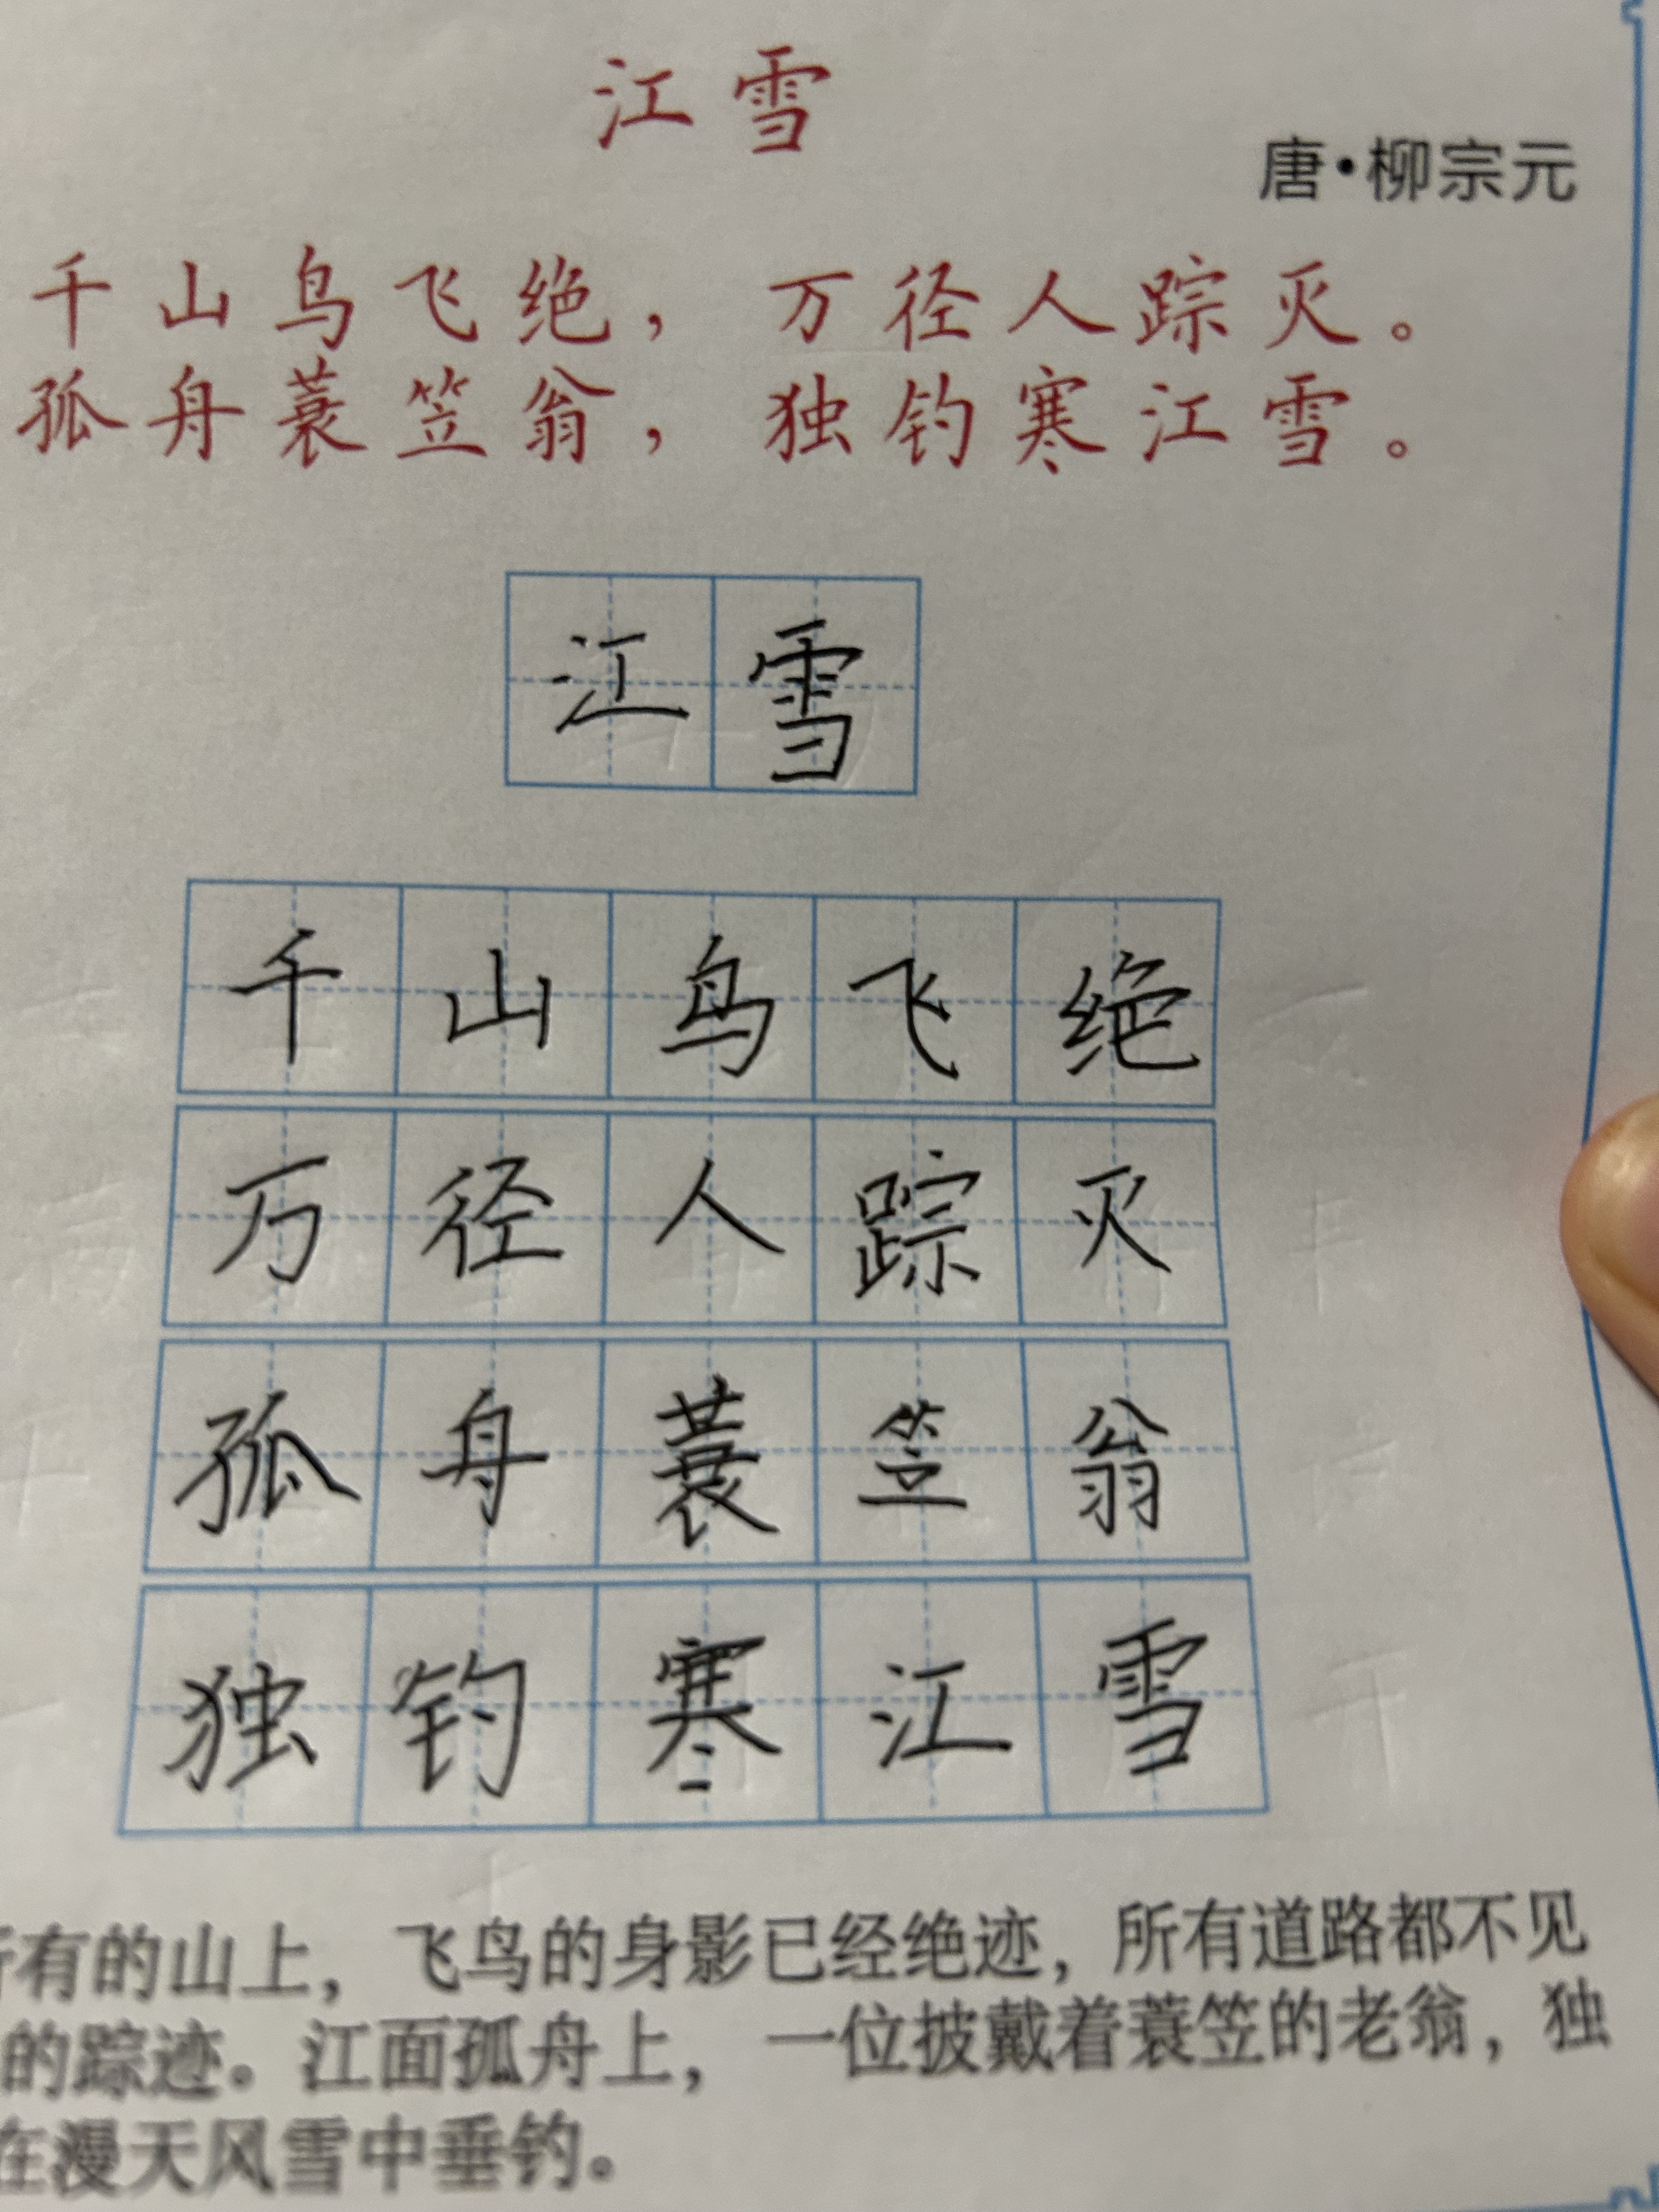 江雪
唐·柳宗元
千山鸟飞绝，万径人踪灭。
孤舟蓑笠翁，独钓寒江雪。
江雪
千山鸟飞绝
万径人踪灭
孤舟蓑笠翁
独钓寒江雪
所有的山上，飞鸟的身影已经绝迹，所有道路都不见
的踪迹。江面孤舟上，一位披戴着蓑笠的老翁，独
在漫天风雪中垂钓。